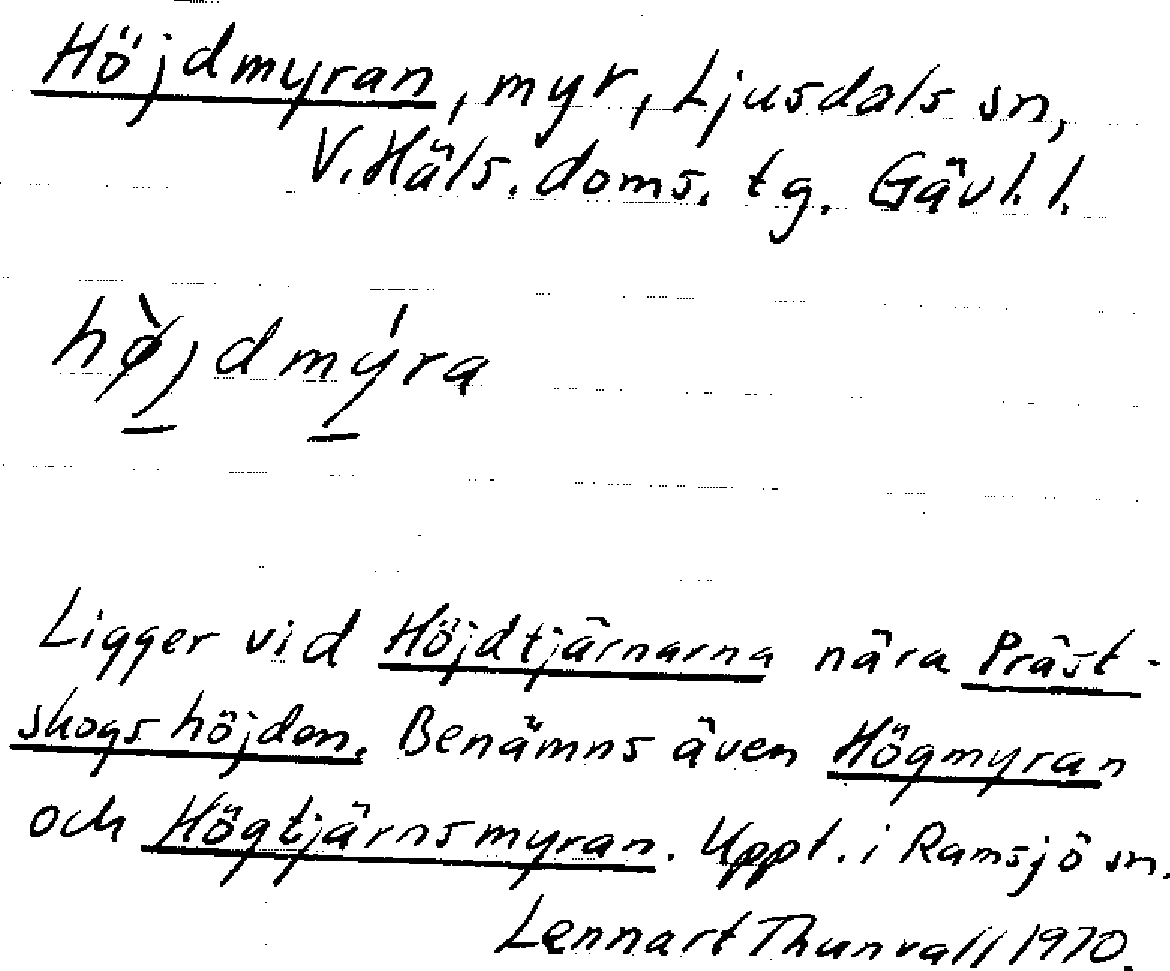 Höjdmyran, myr, Ljusdals sn,
V. Häls. doms. tg. Gävl. l.
hø̀jdmýra
Ligger vid Höjdtjärnarna nära Präst-
skogshöjden. Benämns även Högmyran
och Högtjärnsmyran. Uppt. i Ramsjö sn.
Lennart Thunvall 1970.